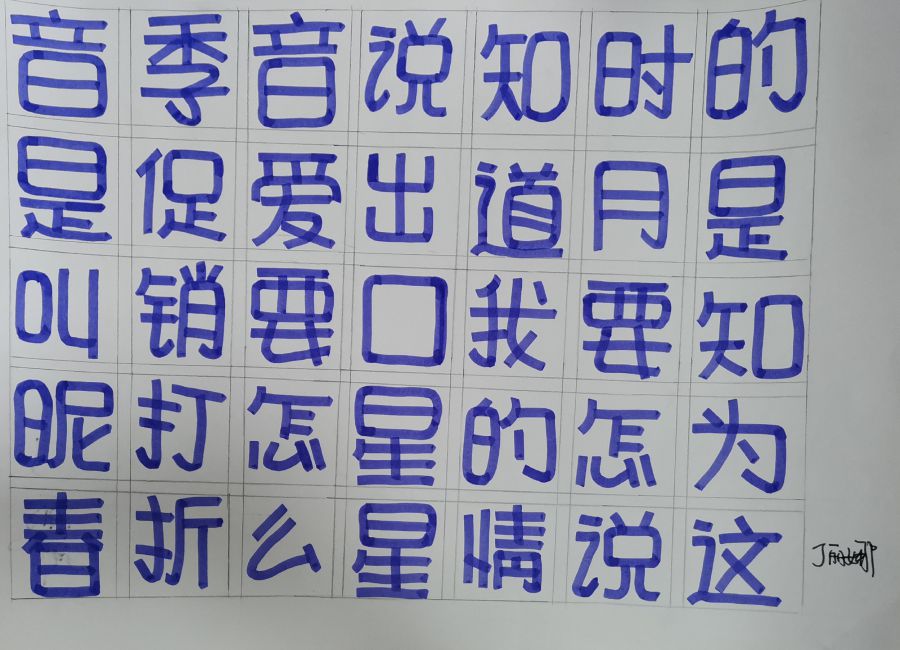 音季音说知时的
是促爱出道月是
叫销要口我要知
昵打怎星的怎为
春折么星情说这